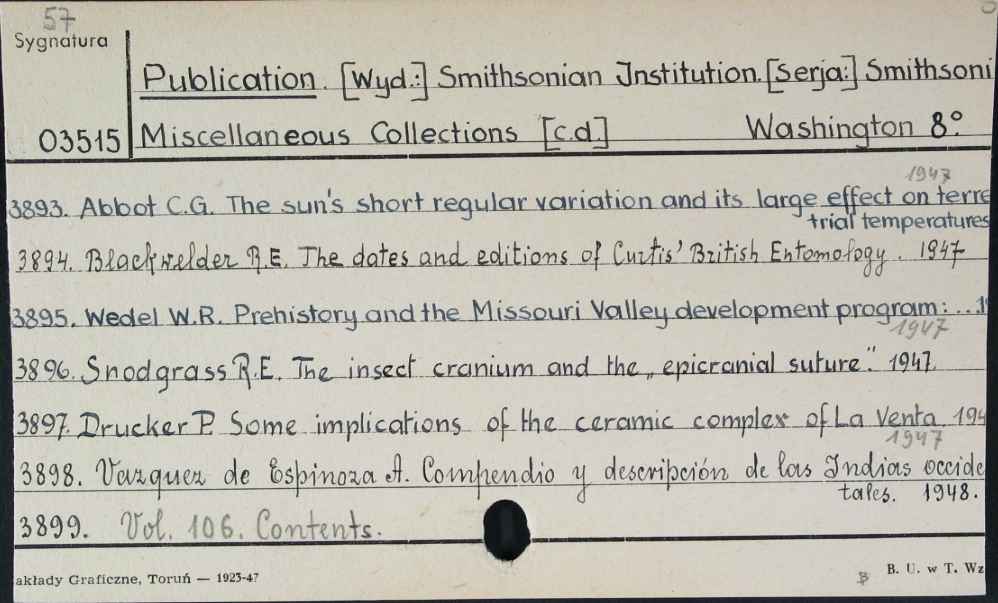 57
Sygnatura
Publication. [Wyd.:] Smithsonian Institution. [Serja:] Smithsoni
03515 Miscellaneous Collections [c.d.] Washington 8°
1947
3893. Abbot C.G. The sun's short regular variation and its large effect on terre
trial temperatures
3894. Blackwelder R.E. The dates and editions of Curtis' British Entomology. 1947
3895. Wedel W.R. Prehistory and the Missouri Valley development program: ... 1
1947
3896. Snodgrass R.E. The insect cranium and the „epicranial suture". 1947
3897. Drucker P. Some implications of the ceramic complex of La Venta. 194
1947
3898. Vazquez de Espinoza A. Compendio y descripción de las Indias occide
tales. 1948.
3899. Vol. 106. Contents.
akłady Graficzne, Toruń — 1925-47
B. U. w T. Wz